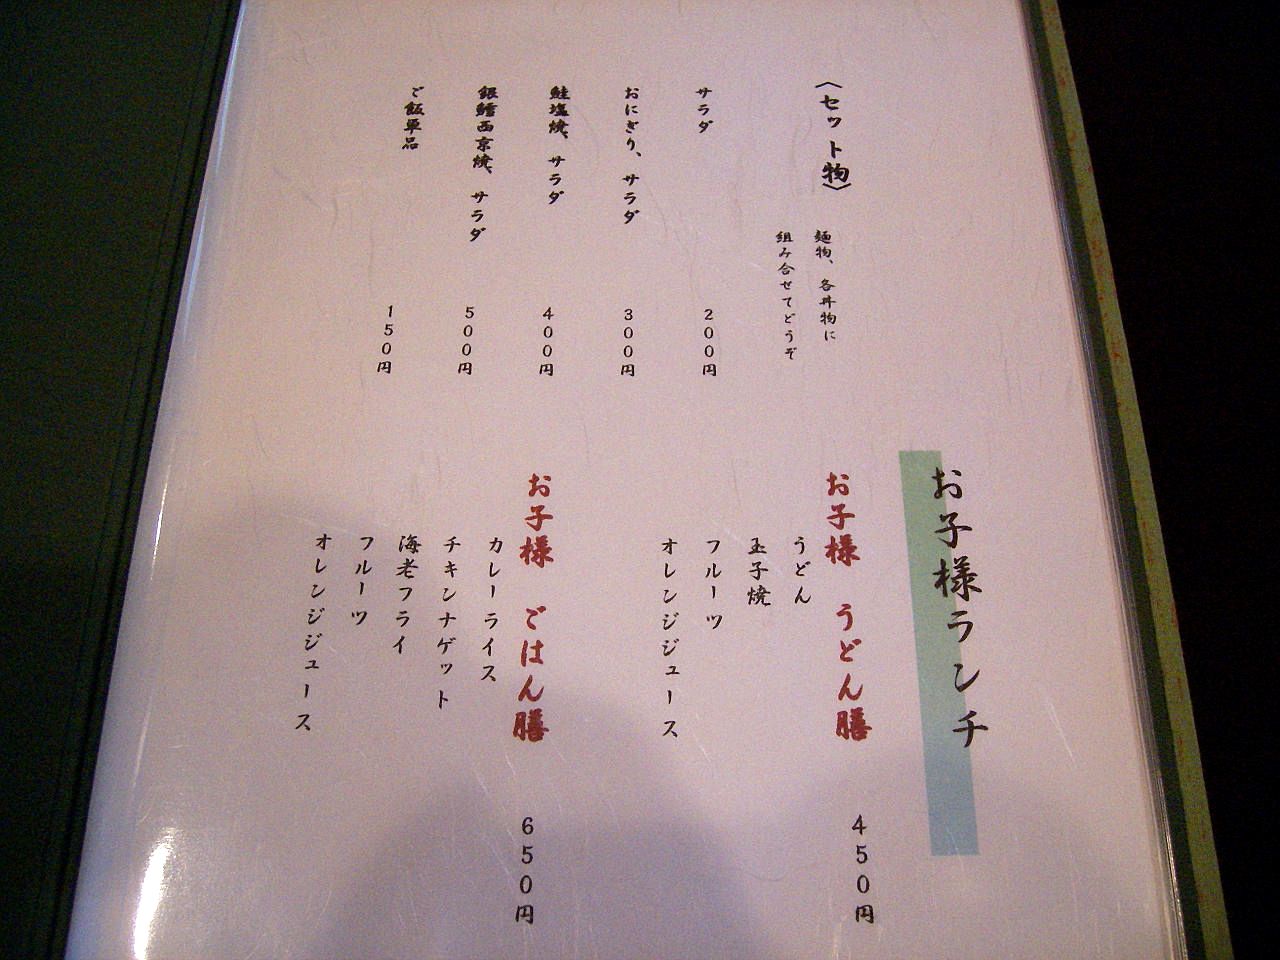 〈セット物〉
麺物、各丼物に
組み合せてどうぞ
サラダ
200円
おにぎり、サラダ
300円
鮭塩焼、サラダ
400円
銀鱈西京焼、サラダ
500円
ご飯単品
150円
お子様ランチ
お子様 うどん膳
450円
うどん
玉子焼
フルーツ
オレンジジュース
お子様 ごはん膳
650円
カレーライス
チキンナゲット
海老フライ
フルーツ
オレンジジュース